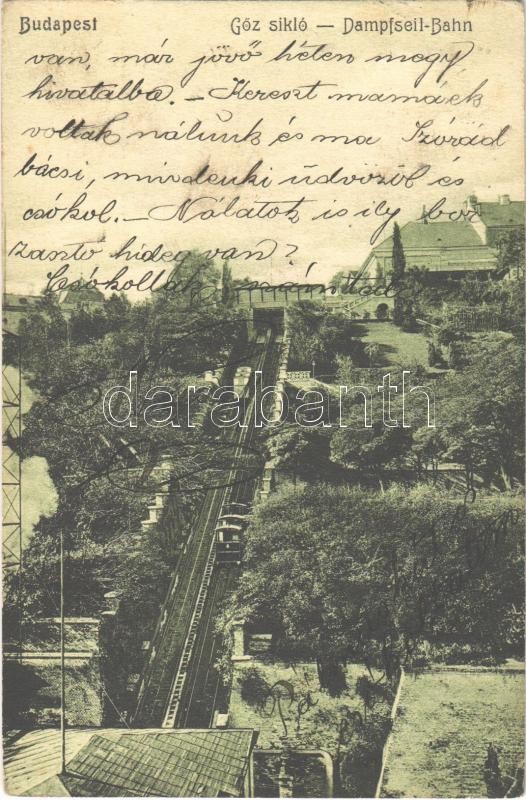 Budapest
Gőz sikló — Dampfseil-Bahn
van, már jövő héten megy
hivatalba. – Kereszt mamáék
voltak nálunk és ma Szórád
bácsi, mindenki üdvözöl és
csókol. – Nálatok is ily bor
zasztó hideg van?
Csókollak számtalan
darabanth